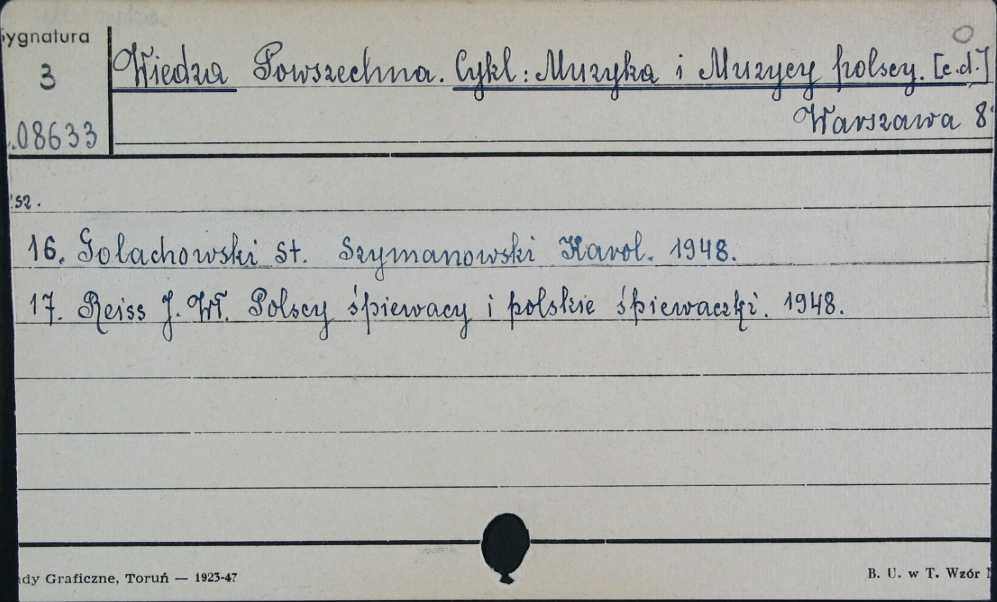 ygnatura
3
.08633
Wiedza Powszechna. Cykl: Muzyka i Muzycy polscy. [c.d.]
Warszawa 8°
sz.
16. Golachowski St. Szymanowski Karol. 1948.
17. Reiss J. Wł. Polscy śpiewacy i polskie śpiewaczki. 1948.
dy Graficzne, Toruń — 1923-47
B. U. w T. Wzór